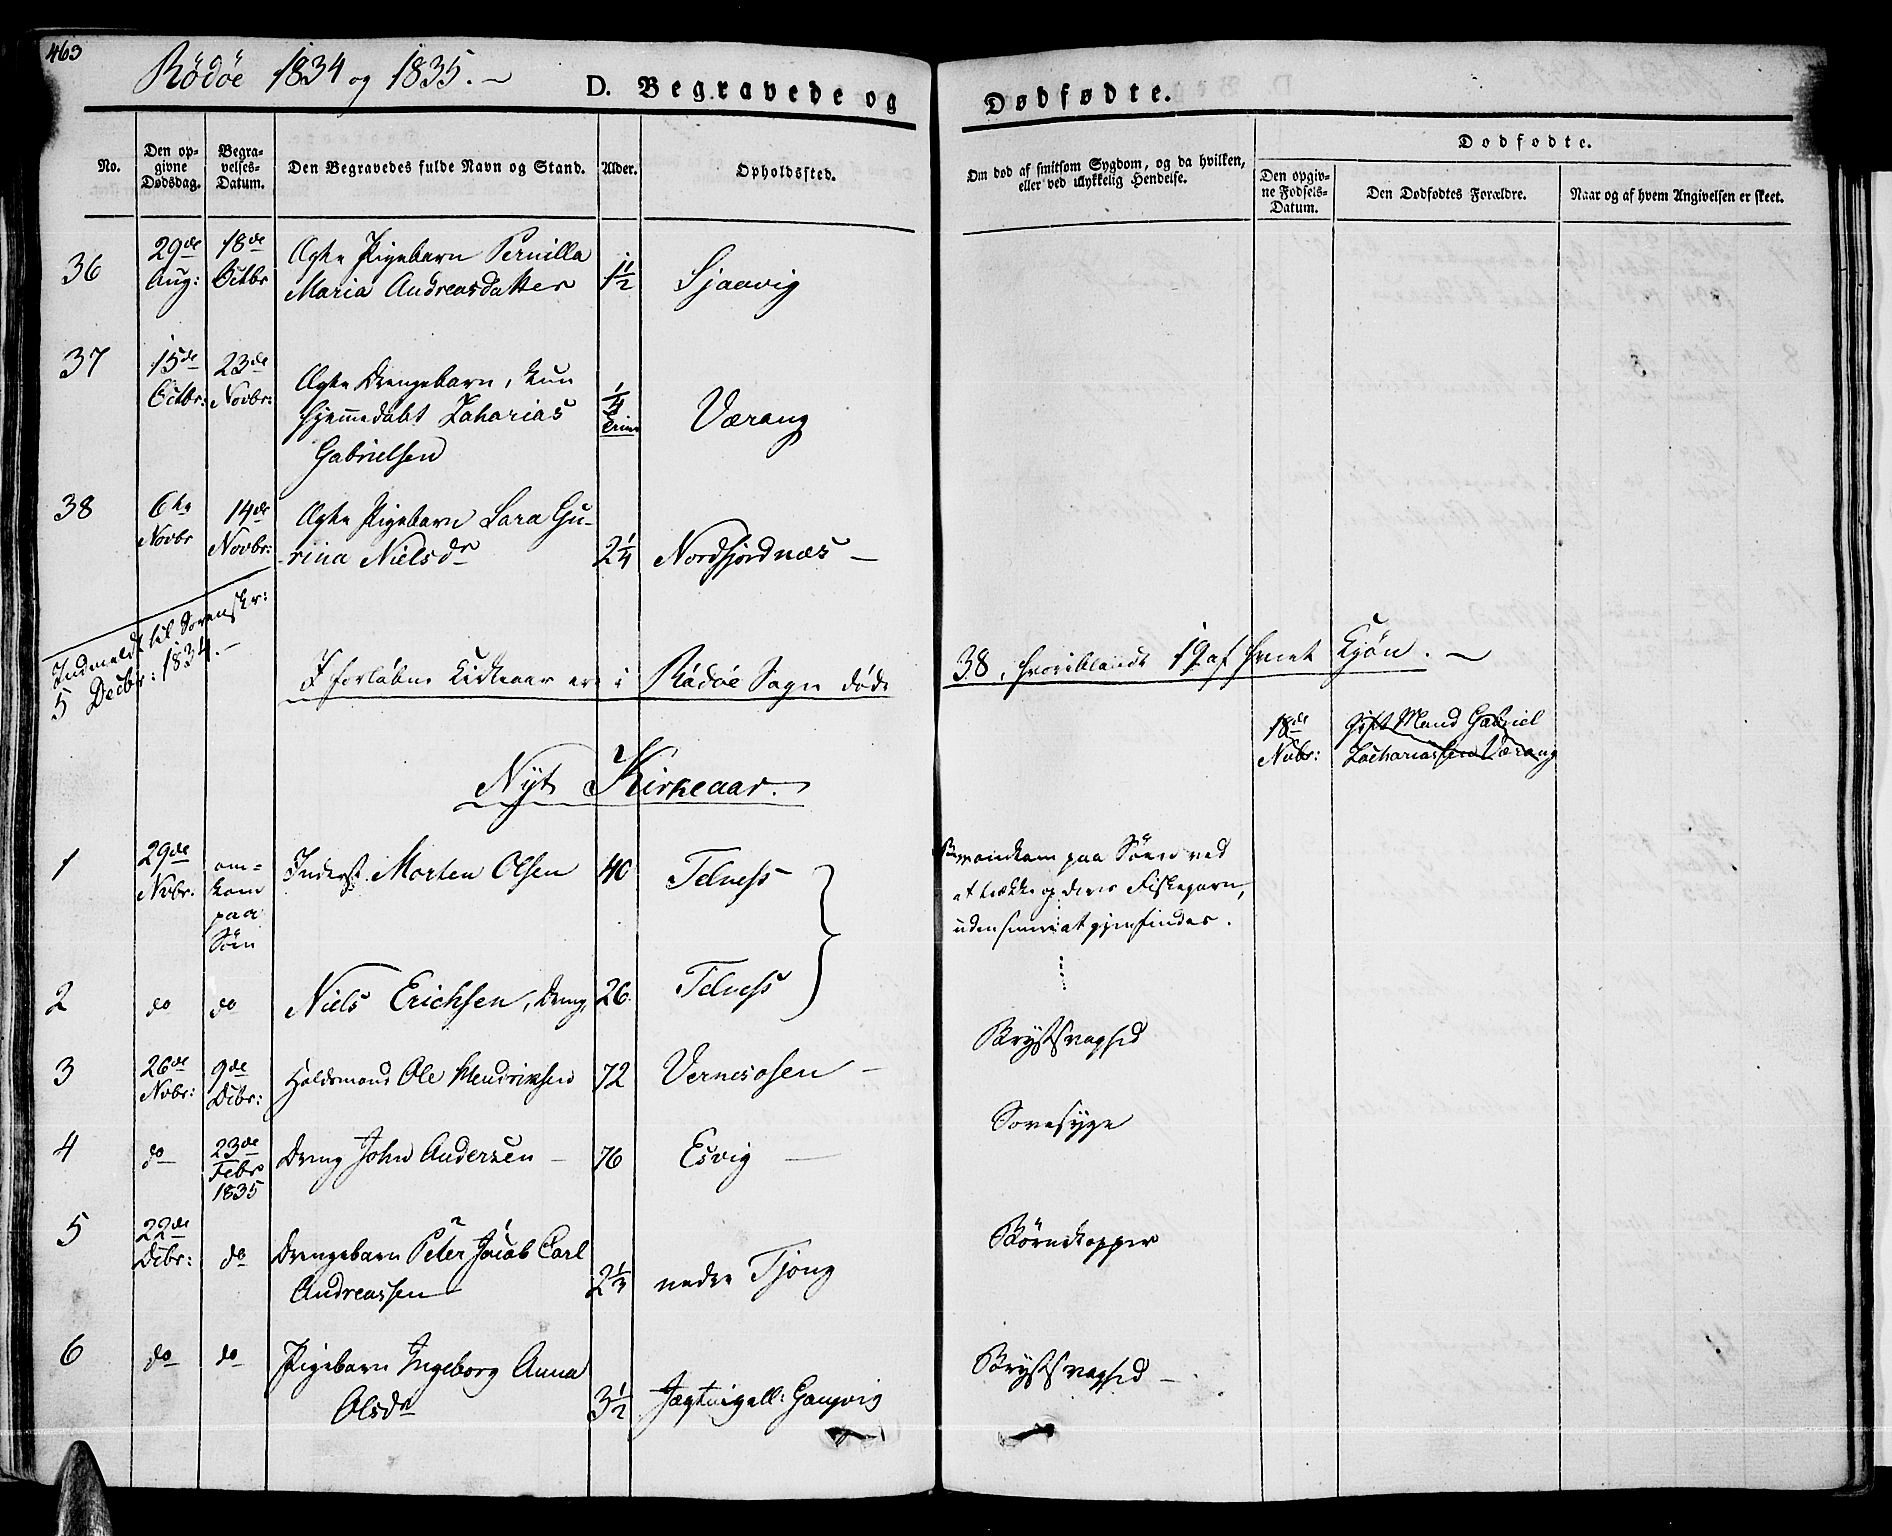 463
Rödöe 1834 og 1835. –
D. Begravede og
Dødfødte.
No.
Den opgivne Dødsdag.
Begravelses-Datum.
Den Begravedes fulde Navn og Stand.
Alder.
Opholdssted.
Om død af smitsom Sygdom, og da hvilken,
eller ved ulykkelig Hendelse.
Dødfødte.
Den opgivne Fødsels-Datum.
Den Dødfødtes Forældre.
Naar og af hvem Angivelsen er skeet.
36 29de Aug: 18de Octbr Ægte Pigebarn Pernilla
Maria Andreasdatter 1 1/2 Sjaavig
37 15de Octbr: 23de Novbr: Ægte Drengebarn, kun
hjemmedøbt Zakarias
Gabrielsen 1/4 Værang
38 6te Novbr 14de Novbr: Ægte Pigebarn Sara Gu-
rina Nielsdr 2 1/4 Nordfjordnæs –
Indmeldt til Sorenskr:
5 Decbr: 1834. –
I forløbne Kirkeaar ere i Rödöe Sogn døde
38, hvoriblandt 19 af hvert Kjøn. –
18de Nvbr: Gift Mand Gabriel
Zachariassen Værang
Nyt Kirkeaar.
1 29de Nvbr: om-
kom
paa
Söen Inderst Morten Olsen 40 Telness
omkom paa Söen ved
at trække op deres Fiskegarn,
uden senere at gjenfindes.
2 do do Niels Erichsen, Dreng, 26. Telness
3 26de Nvbr: 9de Dcbr: Holdsmand Ole Hendriksen 72 Vernesosen –
Brystsvaghed
4 do 23de Febr 1835 Dreng John Andersen – 76 Esvig –
Sovesyge
5 22de Dcbr: do Drengebarn Peter Jacob Carl
Andreassen nedre Tjong
Börnekopper
6 do do Pigebarn Ingeborg Anna
Olsdr 3 1/2
Brystsvaghed –